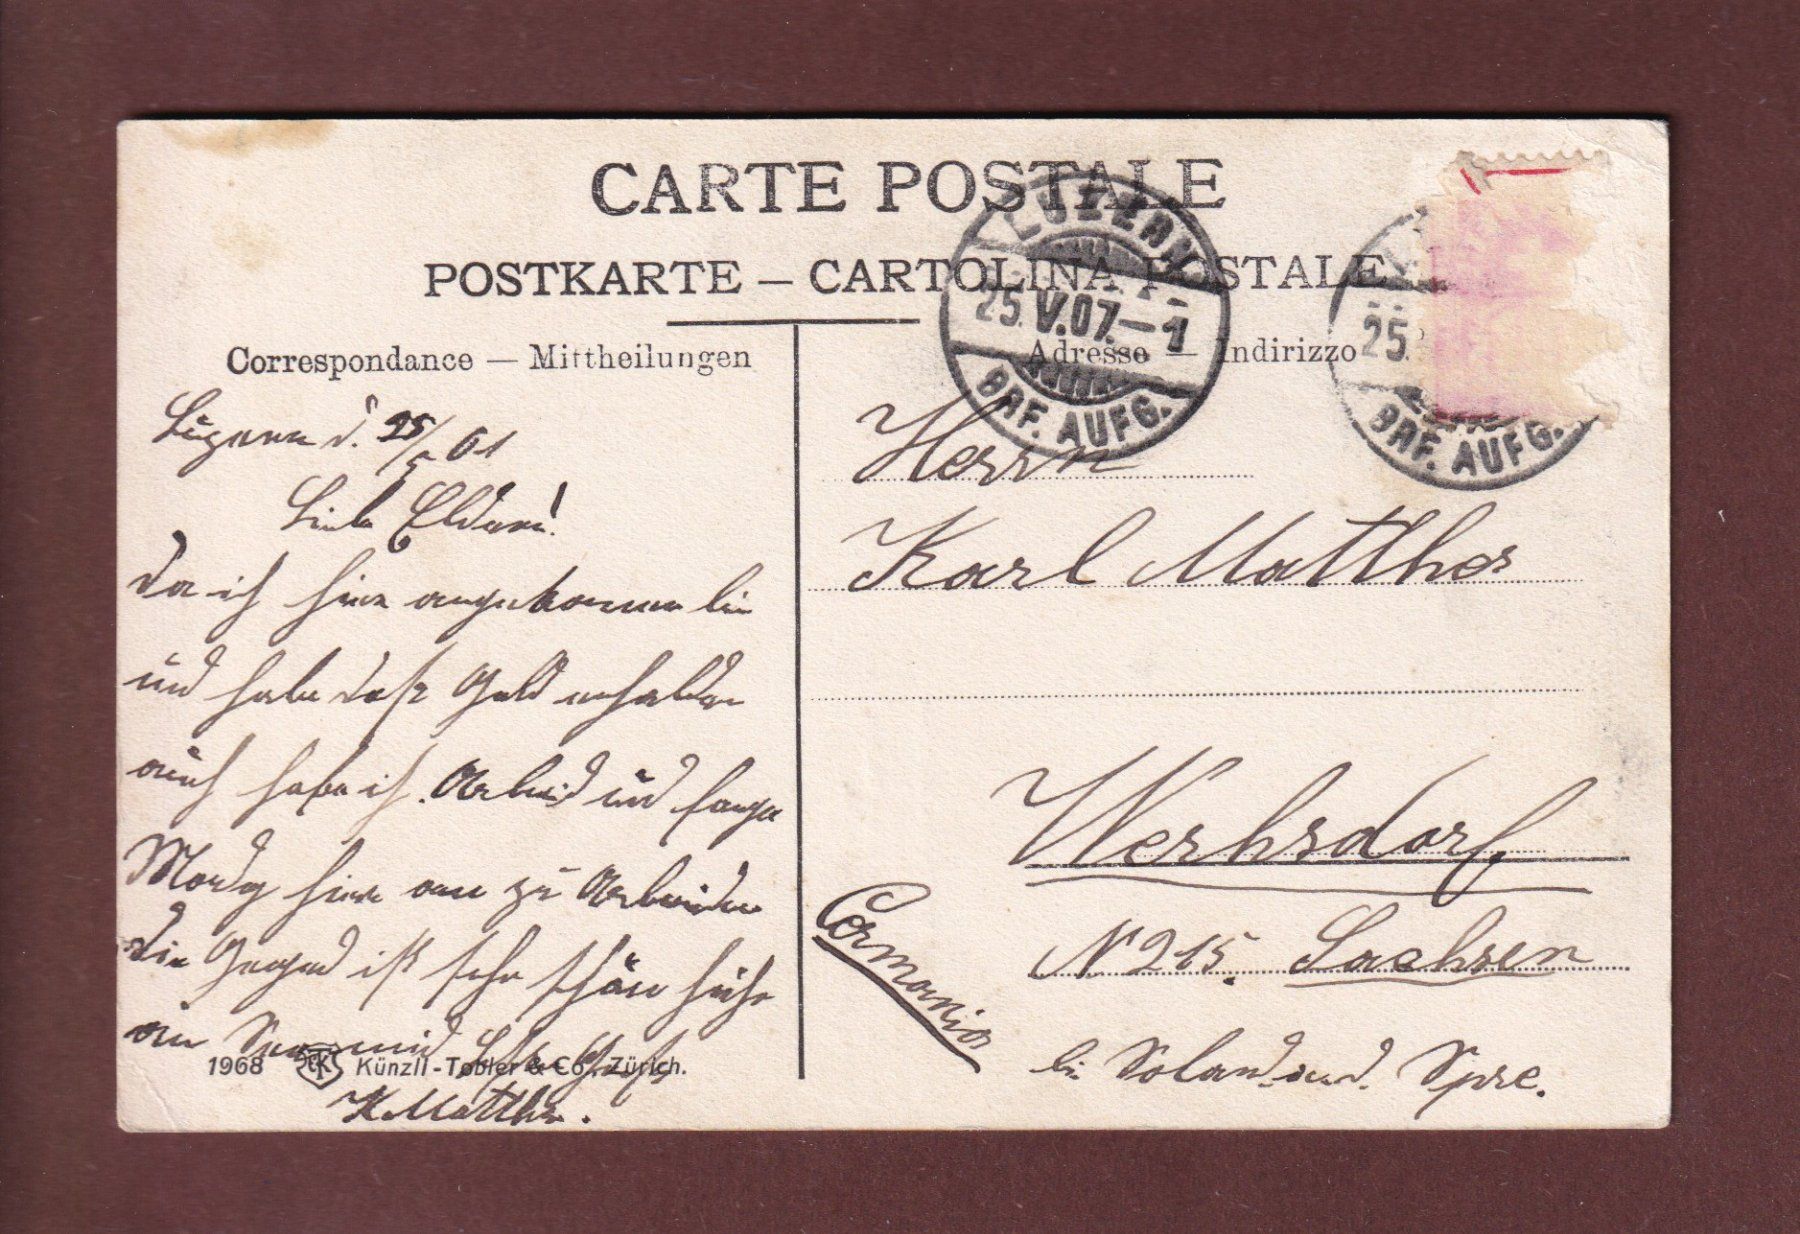 CARTE POSTALE
POSTKARTE – CARTOLINA POSTALE
Correspondance — Mittheilungen
Adresse — Indirizzo
LUZERN
25.V.07.–1
BRF. AUFG.
25.
BRF. AUFG.
Luzern d. 25/5 01
Liebe Eldern!
Da ich hier angekommen bin
und habe daß Geld erhalden
auch habe ich Arbeid und fange
Mordg hier an zu Arbeiden
die Gegend ist sehr schön
ein
K. Matthes.
1968 Künzli-Tobler & Co., Zürich.
Herrn
Karl Matthes
Wehrsdorf
N° 215. Sachsen
Germania
bei Soland a. d. Spre.